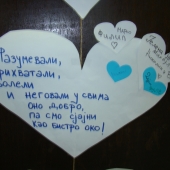 Разумевали,
прихватали,
волели
и неговали у свима
оно добро,
па смо сјајни
као бистро око!
Марко
Филип